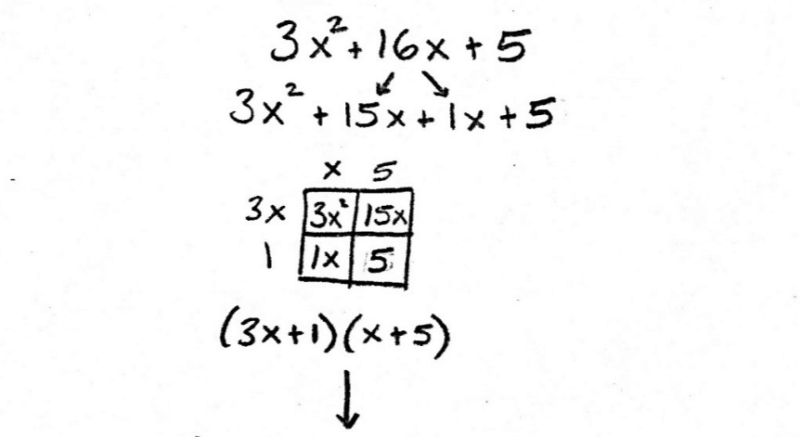 3x² + 16x + 5
3x² + 15x + 1x + 5
x 5
3x 3x² 15x
1 1x 5
(3x+1)(x+5)